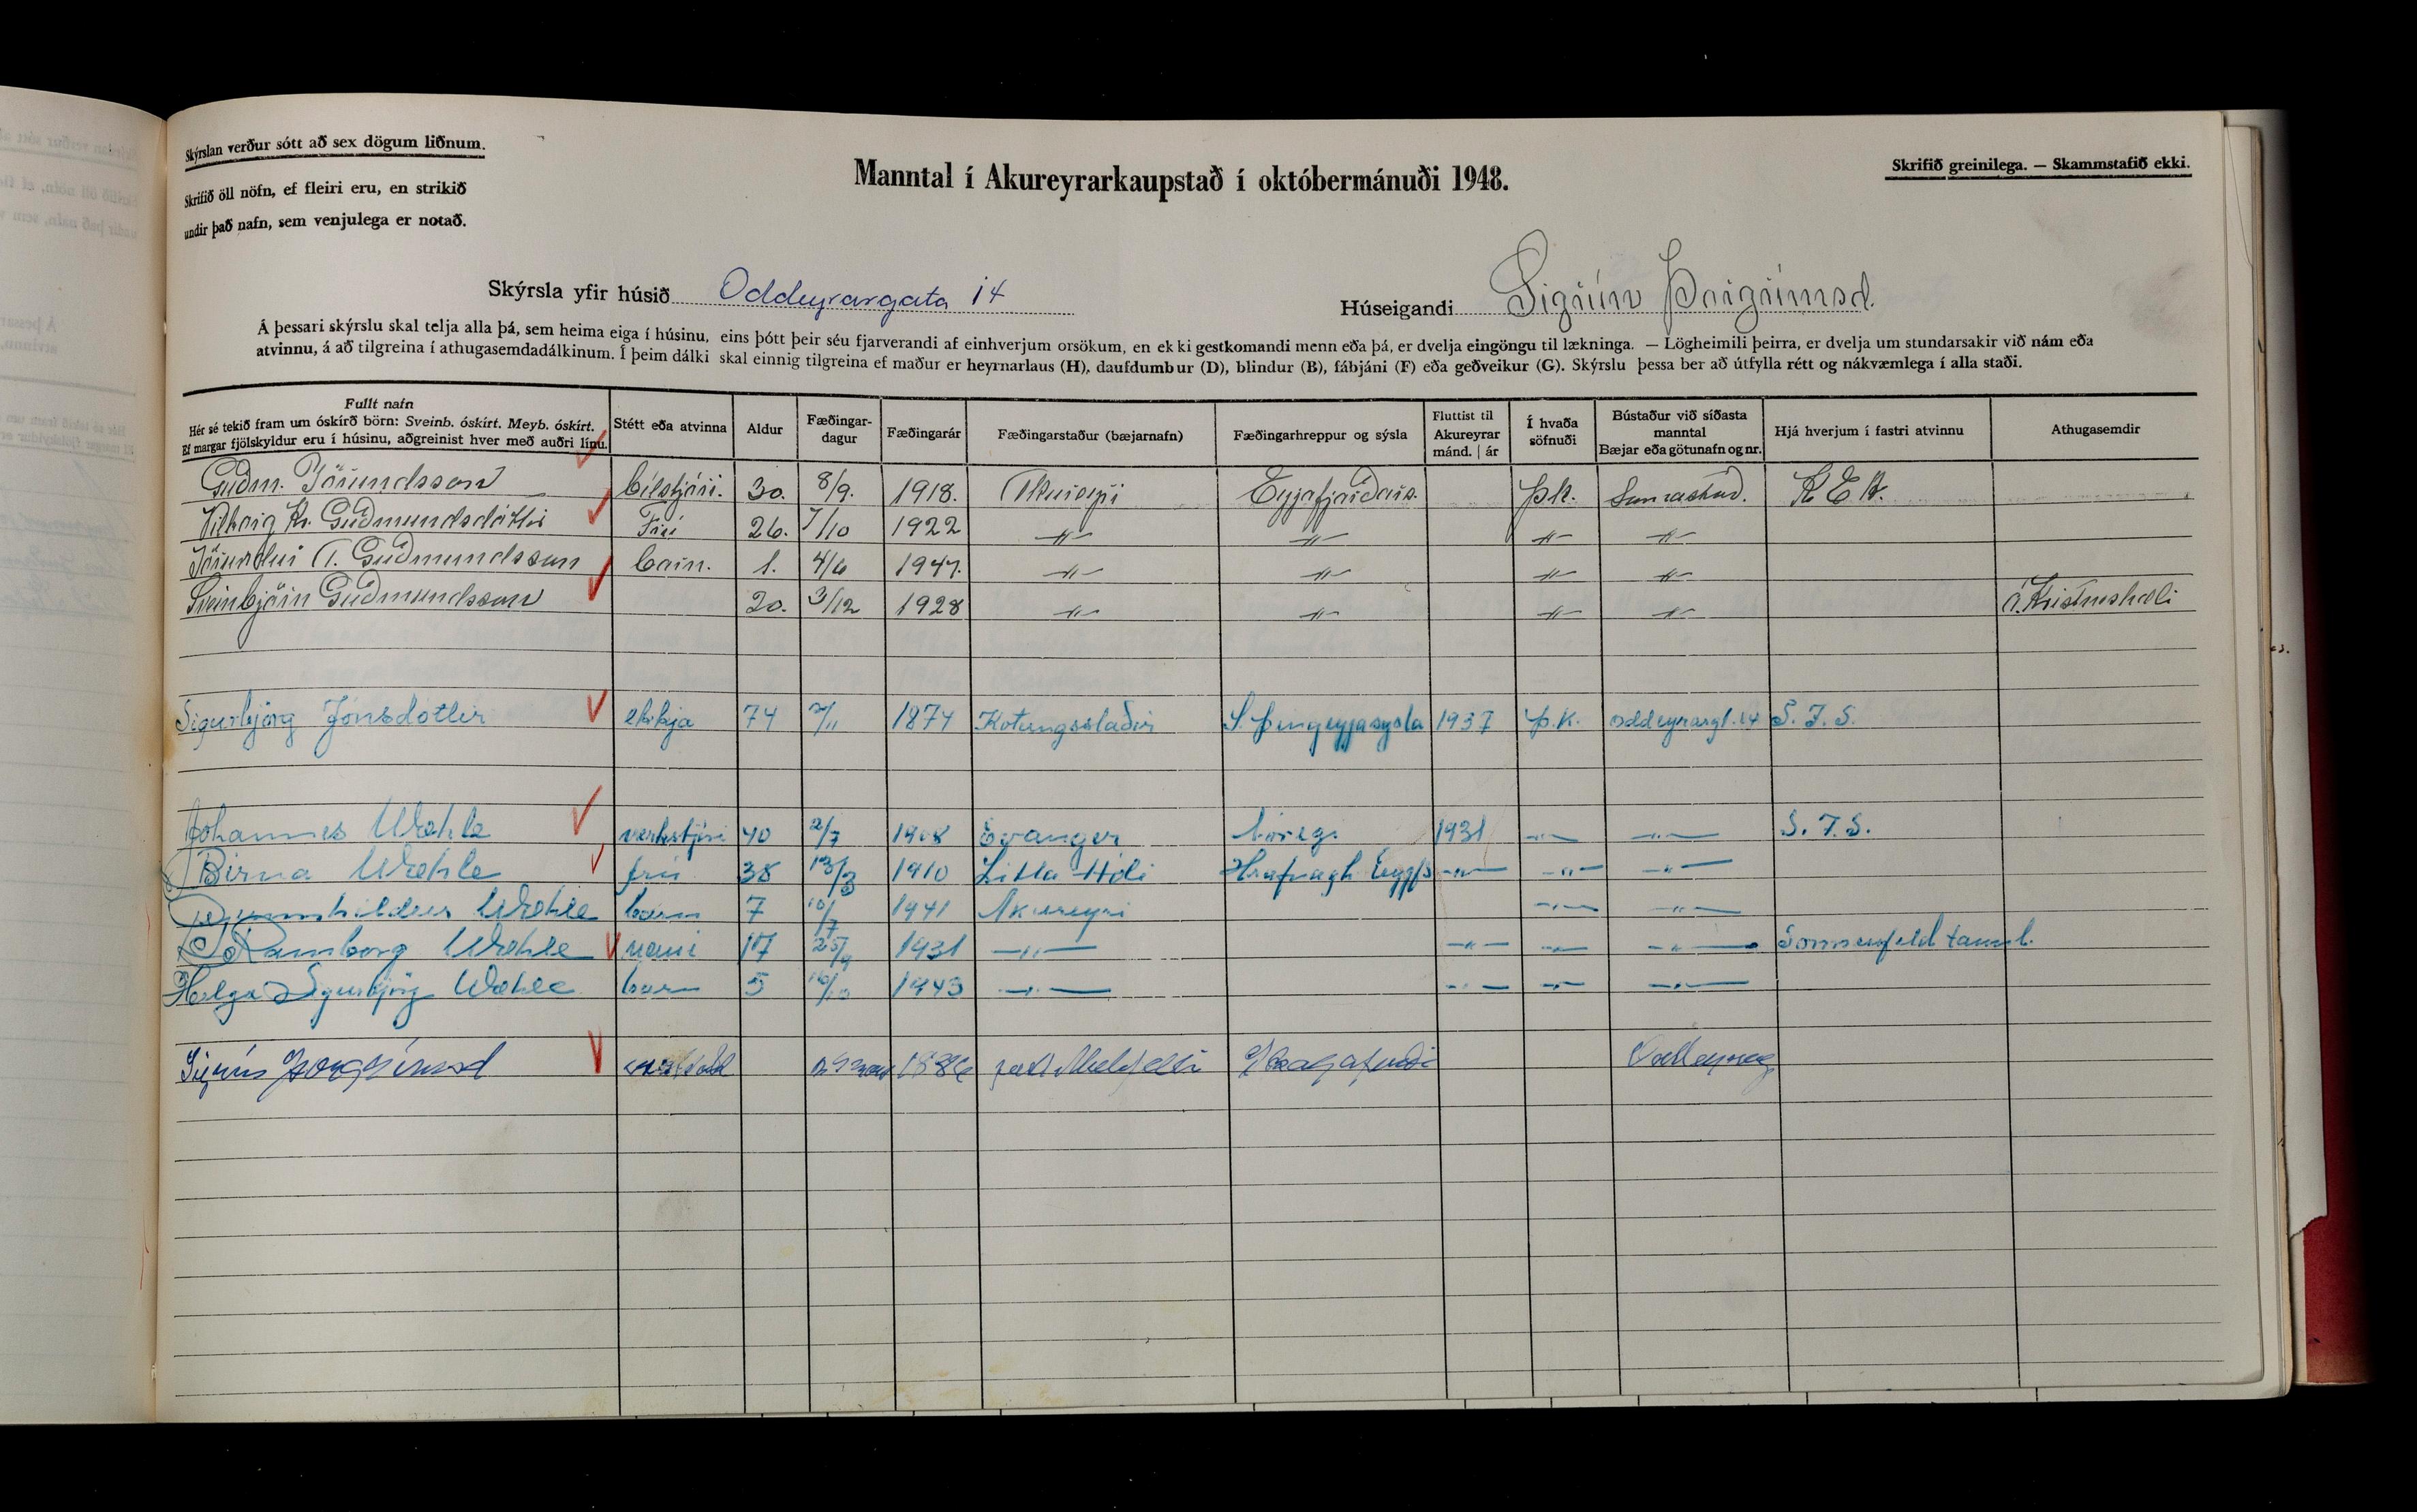 Skýrslan verður sótt að sex dögum liðnum.
Skrifið öll nöfn, ef fleiri eru, en strikið
undir það nafn, sem venjulega er notað.
Manntal í Akureyrarkaupstað í októbermánuði 1948.
Skrifið greinilega. — Skammstafið ekki.
Skýrsla yfir húsið Oddeyrargata 14
Húseigandi Sigrún Þorgrímsd.
Á þessari skýrslu skal telja alla þá, sem heima eiga í húsinu, eins þótt þeir séu fjarverandi af einhverjum orsökum, en ekki gestkomandi menn eða þá, er dvelja eingöngu til lækninga. — Lögheimili þeirra, er dvelja um stundarsakir við nám eða
atvinnu, á að tilgreina í athugasemdadálkinum. Í þeim dálki skal einnig tilgreina ef maður er heyrnarlaus (H), daufdumbur (D), blindur (B), fábjáni (F) eða geðveikur (G). Skýrslu þessa ber að útfylla rétt og nákvæmlega í alla staði.
Fullt nafn
Hér sé tekið fram um óskírð börn: Sveinb. óskírt. Meyb. óskírt.
Ef margar fjölskyldur eru í húsinu, aðgreinist hver með auðri línu.
Stétt eða atvinna
Aldur
Fæðingar-
dagur
Fæðingarár
Fæðingarstaður (bæjarnafn)
Fæðingarhreppur og sýsla
Fluttist til
Akureyrar
mánd. | ár
Í hvaða
söfnuði
Bústaður við síðasta
manntal
Bæjar eða götunafn og nr.
Hjá hverjum í fastri atvinnu
Athugasemdir
Guðm. Jörundsson bílstjóri. 30. 8/9. 1918. Akureyri Eyjafjarðars. þk. K E A.
Kr. Guðmundsdóttir Frú 26. 7/10 1922 –〃– –〃– –〃– –〃–
Jörundur A. Guðmundsson barn. 1. 4/6 1947. –〃– –〃– –〃– –〃–
Sveinbjörn Guðmundsson 20. 3/12 1928 –〃– –〃– –〃– –〃– á Kristneshæli
Sigurbjörg Jónsdóttir ekkja 74 1874 S. Þingeyjasysla 1937 þ.K. Oddeyrargt. 14 S. Í. S.
Johannes Wæhle verkstjóri 40 2/7 1908 Evanger Noregi 1931 –〃– –〃– S. Í. S.
Birna Wæhle frú 38 13/3 1910 Litla Hóli Hrafnagh Eyjfs –〃– –〃– –〃–
Gunnhildur Wæhle barn 7 10/7 1941 Akureyri –〃– –〃–
Ramborg Wæhle nemi 17 25/9 1931 –〃– –〃– –〃– –〃– Sonnenfeld tannl.
Helga Sigurbjörg Wæhle barn 5 16/10 1943 –〃– –〃– –〃– –〃–
Sigrún Þorgrímsd 1886 Skagafirði